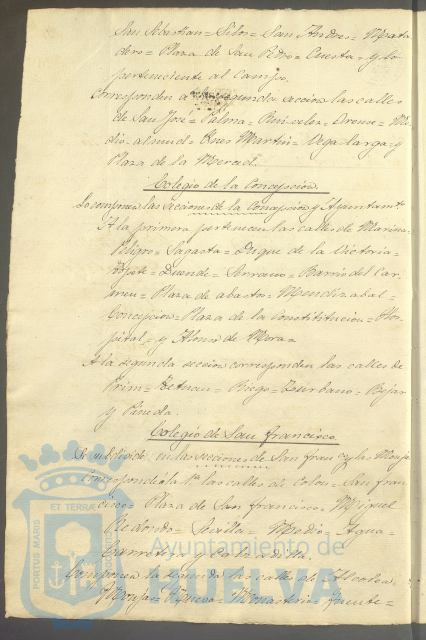 San Sebastian = Silos = San Andres = Mata
dero = Plaza de San Pedro = Cuesta = y lo
perteneciente al Campo.
Corresponden a la segunda sección las calles
de San José = Palma = Rui-velez = Orense = Me
dio almud = Ynes Martin = Vega larga = y
Plaza de la Merced.
Colegio de la Concepcion.
Lo componen las secciones de la Concepcion y Ayuntamto
A la primera pertenecen las calles de Marina =
Peligro = Sagasta = Duque de la Victoria =
= Duende = Serrano = Barrio del Car
men = Plaza de abastos = Mendizabal =
Concepcion = Plaza de la Constitucion = Hos
pital = y Alma de Mora =
A la segunda seccion corresponden las calles de
Prim = Tetuan = Riego = Zurbano = Bejar
y Pineda.
Colegio de San Francisco.
Se subdivide en las secciones de San Fran.co y las Monjas
Corresponde á la 1.a las calles de Colon = San Fran
cisco = Plaza de San Francisco = Miguel
Redondo = Sevilla = Medio = Agua =
Componen la segunda las calles de Alcolea
Monjas = = Monasterio = Fuente =
PORTUS MARIS
ET TERRÆ
CUSTODIA
Ayuntamiento de
HUELVA